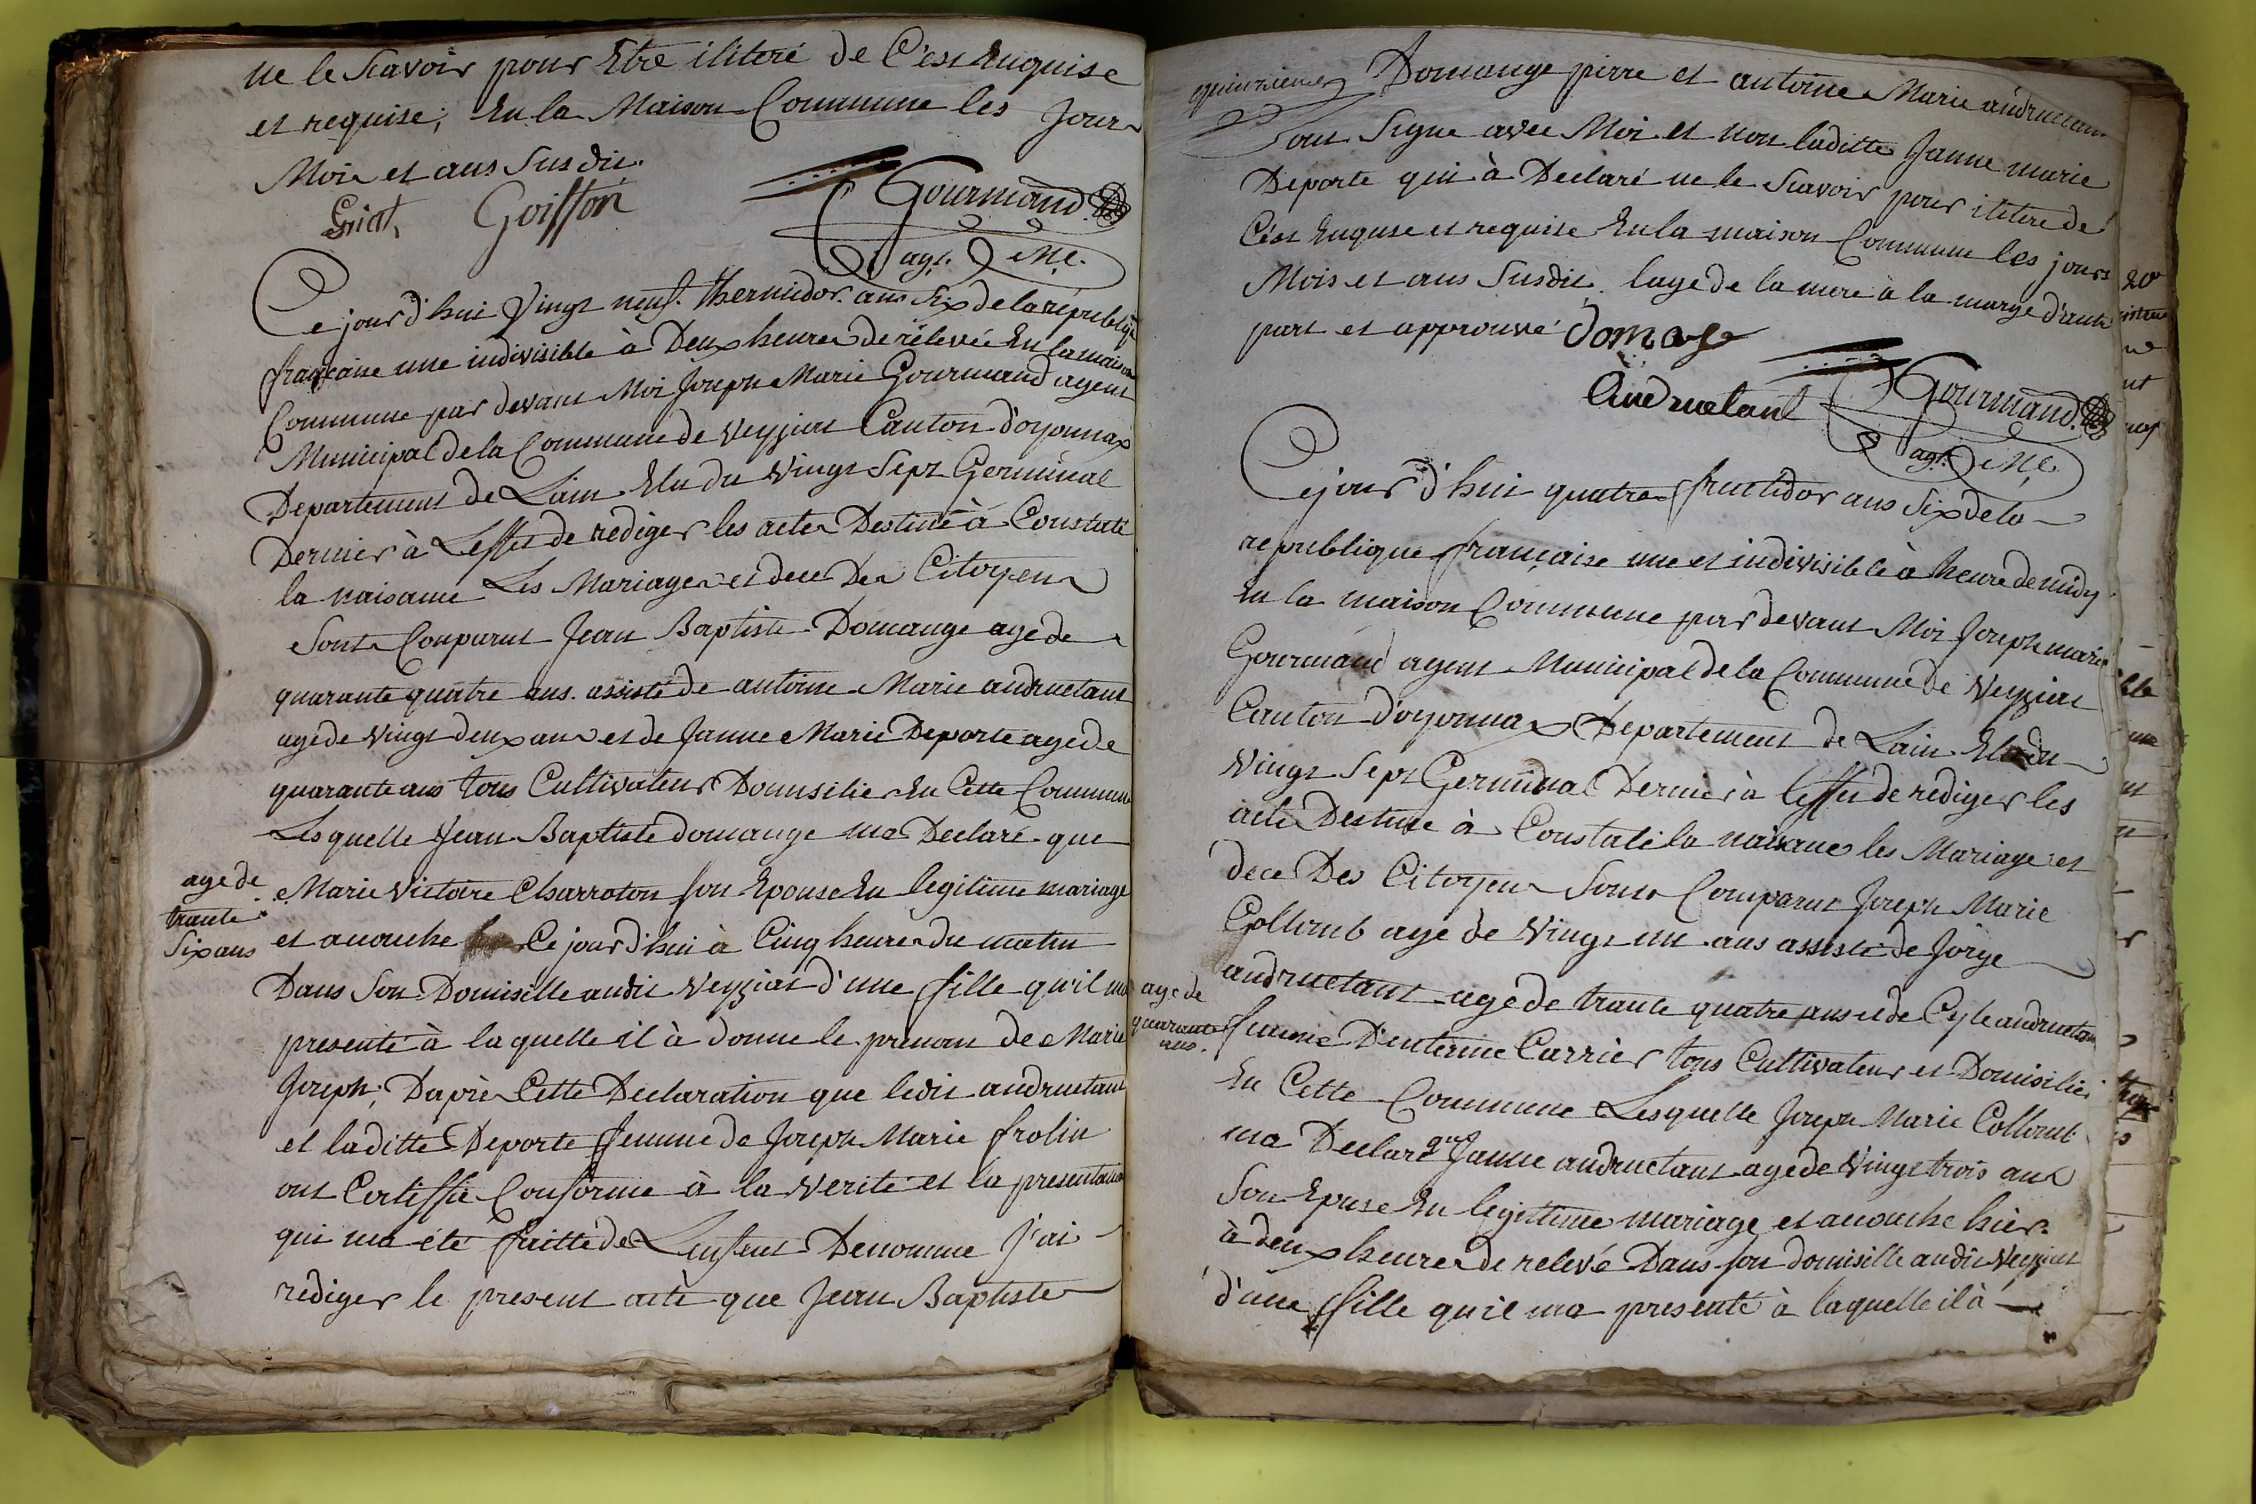 ne le Scavoir pour Etre iliteré de C'est Enquise
et requise; En la Maison Commune les Jour
Mois et ans Susdit.
Griot, Goiffon Gourmand
agt. Me.
Ce jour d'hui Vingt neuf Thermidor ans Six de la republiq
française une indivisible à Deux heures de rélevée En la maison
Commune par devant Moi Joseph Marie Gourmand agent
Municipal de la Commune de Veyziat Canton d'oyonnax
Departement de Lain Elu du Vingt Sept Germinal
Dernier à L'effet de rediger les actes Destiné à Constaté
la naisanne Les Mariages et dece Des Citoyens
Sont Conparut Jean Baptiste Domange age de
quarante quatre ans. assisté de antoine Marie andruetant
age de Vingt deux ans et de Janne Marie Deporte age de
quarante ans tous Cultivateur Domisilier En Cette Commune
Lesquelle Jean Baptiste domange ma Declaré que
age de
trante
Six ans
Marie Victoire Charroton son Epouse En legitime mariage
et acouche Ce jour d'hui à Cinq heures du matin
Dans Son Domisille audit Veyziat d'une fille qu'il ma
presenté à laquelle il à donne le prenom de Marie
Joseph; Daprès Cette Declaration que ledit andruetant
et laditte Deporte femme de Joseph Marie frolin
ont Certiffie Conforme à la Verité et la presentation
qui ma été faitte de Lenfent Denomme J'ai
rediger le present acte que Jean Baptiste
Domange pierre et antoine Marie andruetant
Sont Signe avec Moi et non laditte Janne marie
Deporte qui à Declaré ne le Scavoir pour ilitere de
C'est Enquise et requise En la maison Commune les jours
Mois et ans Susdit. lage de la mere à la marge d'autre
part et approuvé Domage
Andruetant Gourmand
agt. Me.
Ce jour d'hui quatre fructidor ans Six de la
republique française une et indivisible à heure de midy
En la maison Commune par devant Moi Joseph marie
Gourmand agent Municipal de la Commune de Veyziat
Canton d'oyonnax Departement de Lain Elu du
Vingt Sept Germinal Dernier à l'effet de rediger les
acte Destine à Constaté la naisane les Mariage et
dece Des Citoyens Sont Comparut Joseph Marie
Collomb age de Vingt un ans assisté de Jorge
andruetant age de trante quatre ans et de andruetan
age de
quarante
ans.
femme D'enterme Carrier tous Cultivateur et Domisilie
En Cette Commune Lesquelle Joseph Marie Collomb
ma Declaré que Janne andruetant age de Vingt trois ans
Son Epuse En legitime mariage et acouche hier
à deux heures de relevé Dans son domisille audit Veyziat
d'une fille qu'il ma presenté à laquelle il à